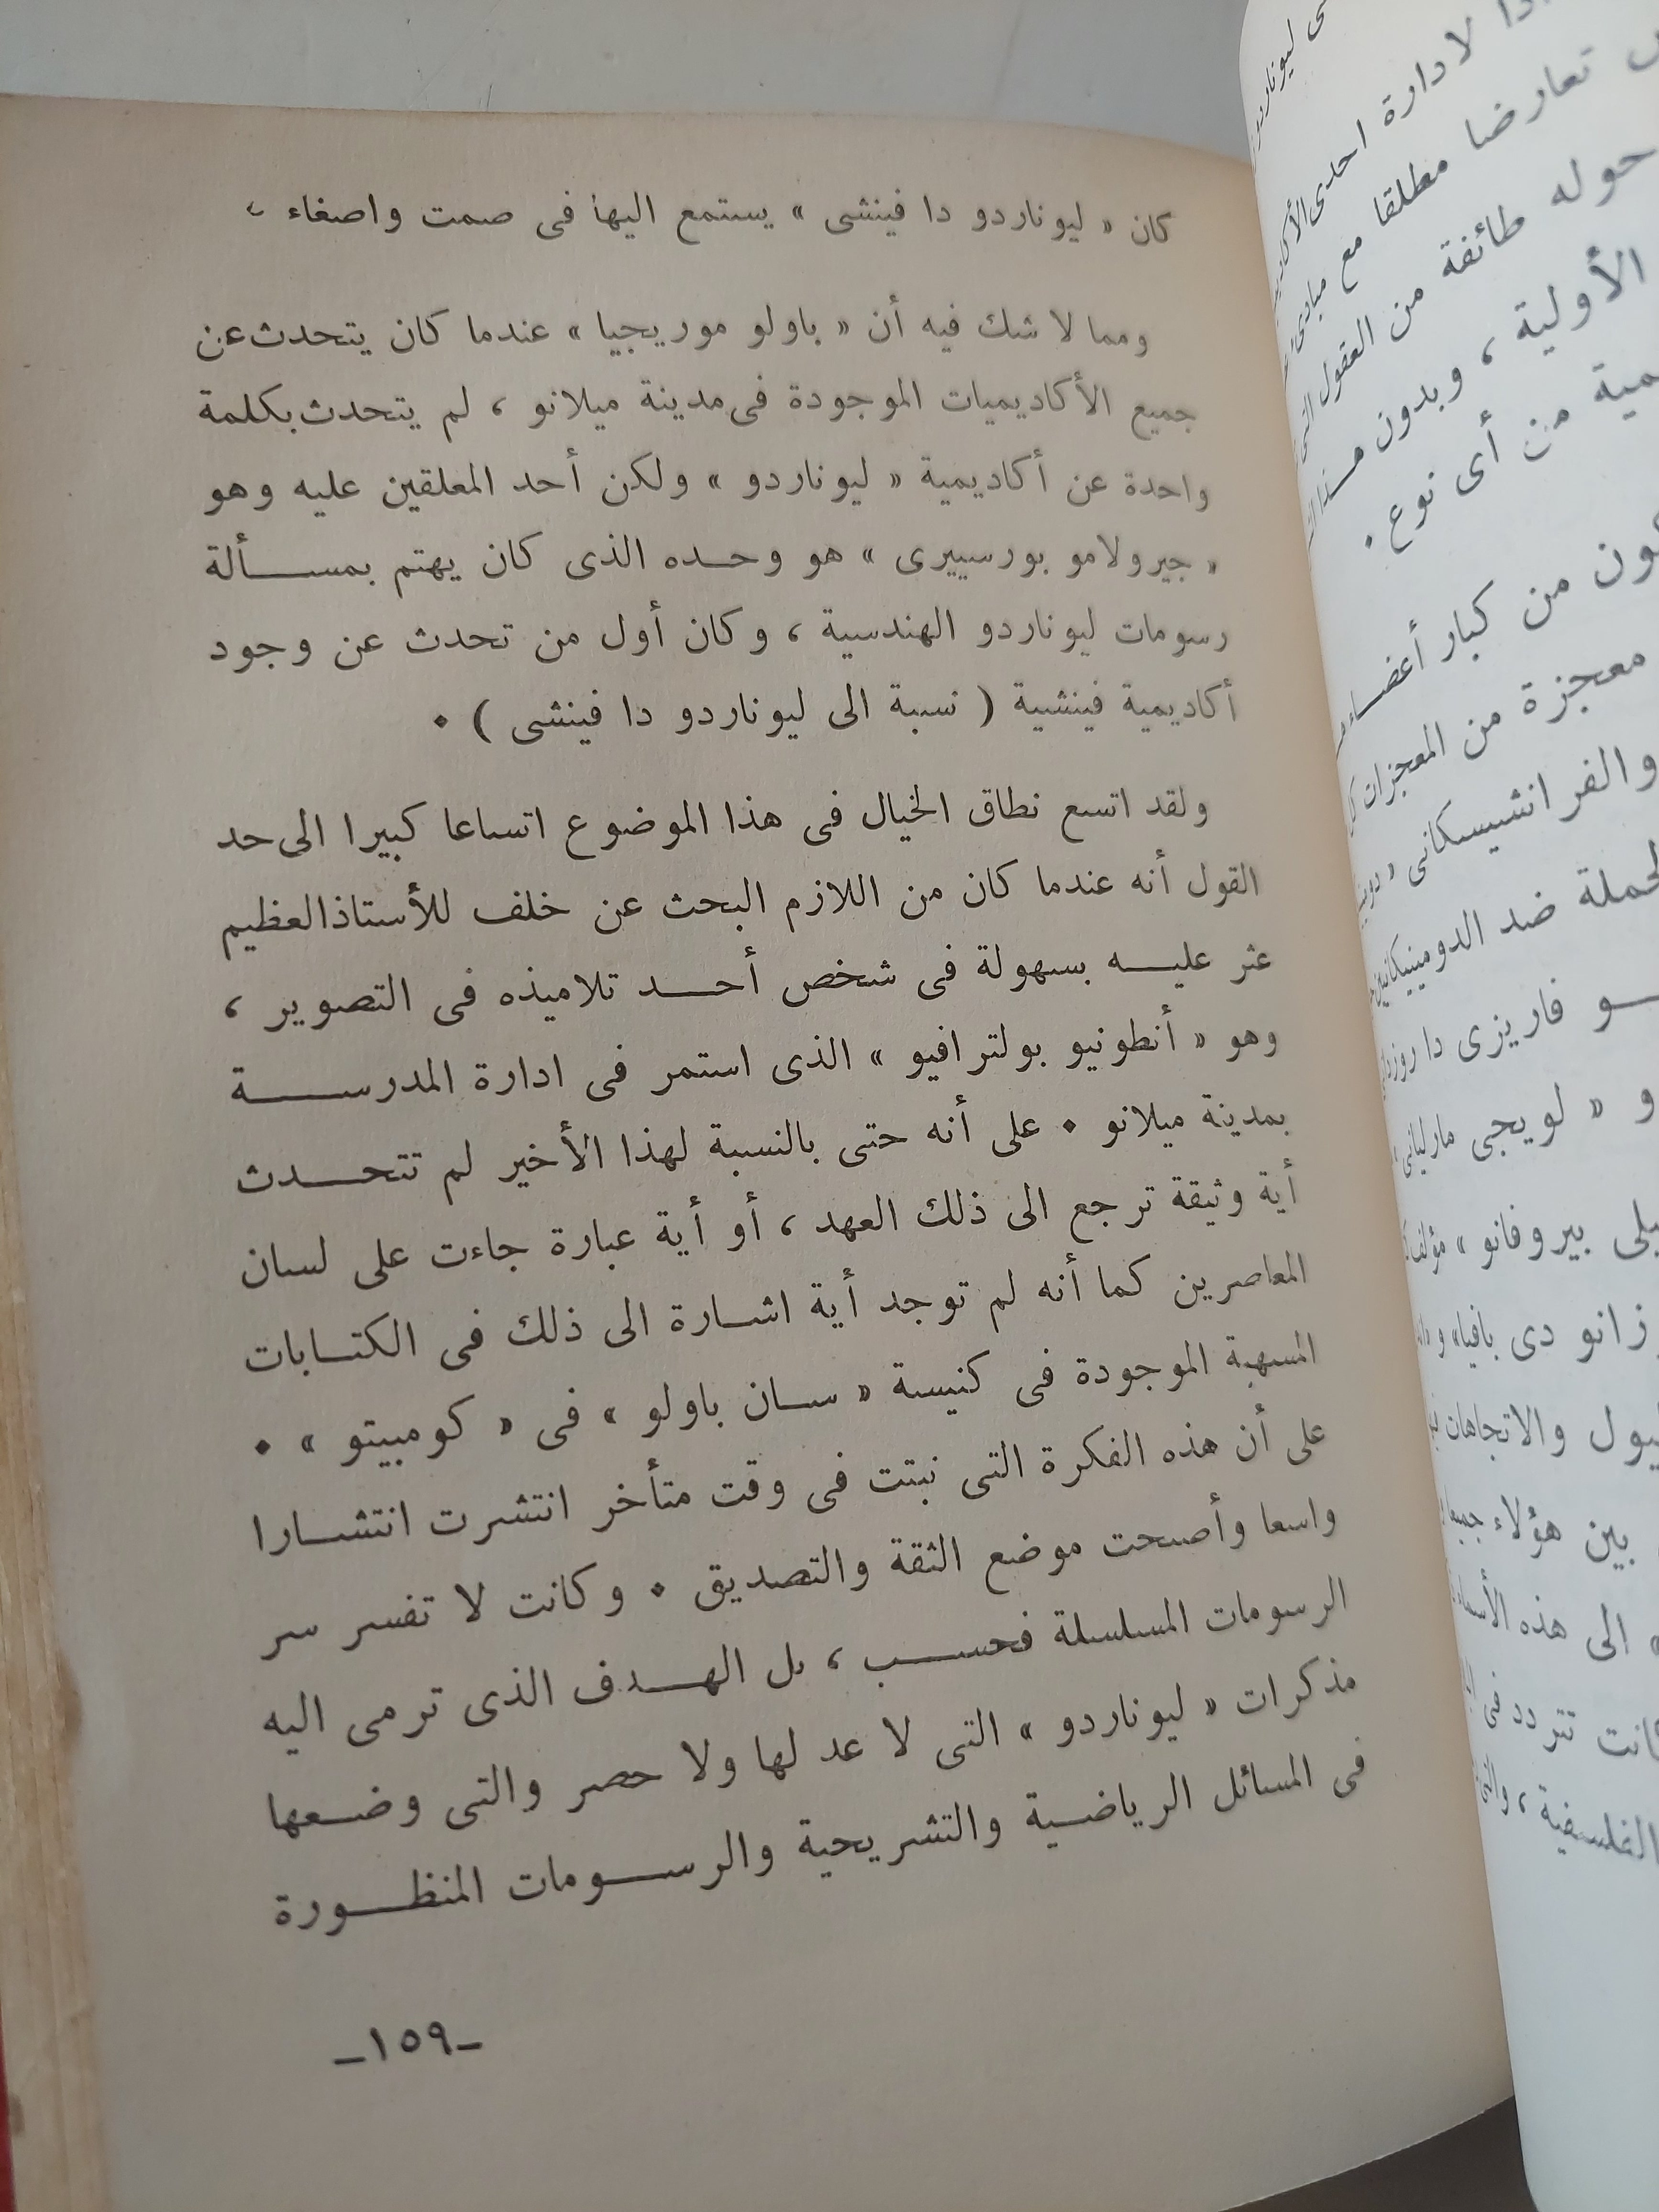 كان « ليوناردو دا فينشى » يستمع اليها فى صمت واصغاء ،
ومما لا شك فيه أن « باولو موريجيا » عندما كان يتحدث عن
جميع الأكاديميات الموجودة فى مدينة ميلانو ، لم يتحدث بكلمة
واحدة عن أكاديمية « ليوناردو » ولكن أحد المعلقين عليه وهو
« جيرولامو بورسييرى » هو وحـده الذى كان يهتم بمســألة
رسومات ليوناردو الهندسية ، وكان أول من تحدث عن وجود
أكاديمية فينشية ( نسبة الى ليوناردو دا فينشى ) ٠
ولقد اتسع نطاق الخيال فى هذا الموضوع اتساعا كبيرا الى حد
القول أنه عندما كان من اللازم البحث عن خلف للأستاذ العظيم
عثر عليــه بسهولة فى شخص أحــد تلاميذه فى التصوير ،
وهو « أنطونيو بولترافيو » الذى استمر فى ادارة المدرســـة
بمدينة ميلانو ٠ على أنه حتى بالنسبة لهذا الأخير لم تتحــدث
أية وثيقة ترجع الى ذلك العهد ، أو أية عبارة جاءت على لسان
المعاصرين كما أنه لم توجد أية اشـارة الى ذلك فى الكتـابات
المسهبة الموجودة فى كنيسة « سـان باولو » فى « كومبيتو » ٠
على أن هذه الفكرة التى نبتت فى وقت متأخر انتشرت انتشـارا
واسعا وأصبحت موضع الثقة والتصديق ٠ وكانت لا تفسر سر
الرسومات المسلسلة فحســب ، بل الهــدف الذى ترمى اليه
مذكرات « ليوناردو » التى لا عد لها ولا حصر والتى وضـعها
فى المسائل الرياضـية والتشريحية والرســومات المنظــورة
ـ١٥٩ـ
لادارة احدى
تعارضا مطلقا مع مبادىء
حوله طائفة من العقول التى
الأولية ، وبدون هـذا
من أى نوع ٠
من كبار أعضـاء
معجزة من المعجزات
والفرانشيسكانى
ضد الدومينيكانيين
فاريزى دا
و « لويجى مارليانى
بيروفانو » مؤلف
زانو دى بافيا »
والاتجاهات
بين هؤلاء جميعا
الى هذه الأسماء
تتردد فى
الفلسفية ، والتى